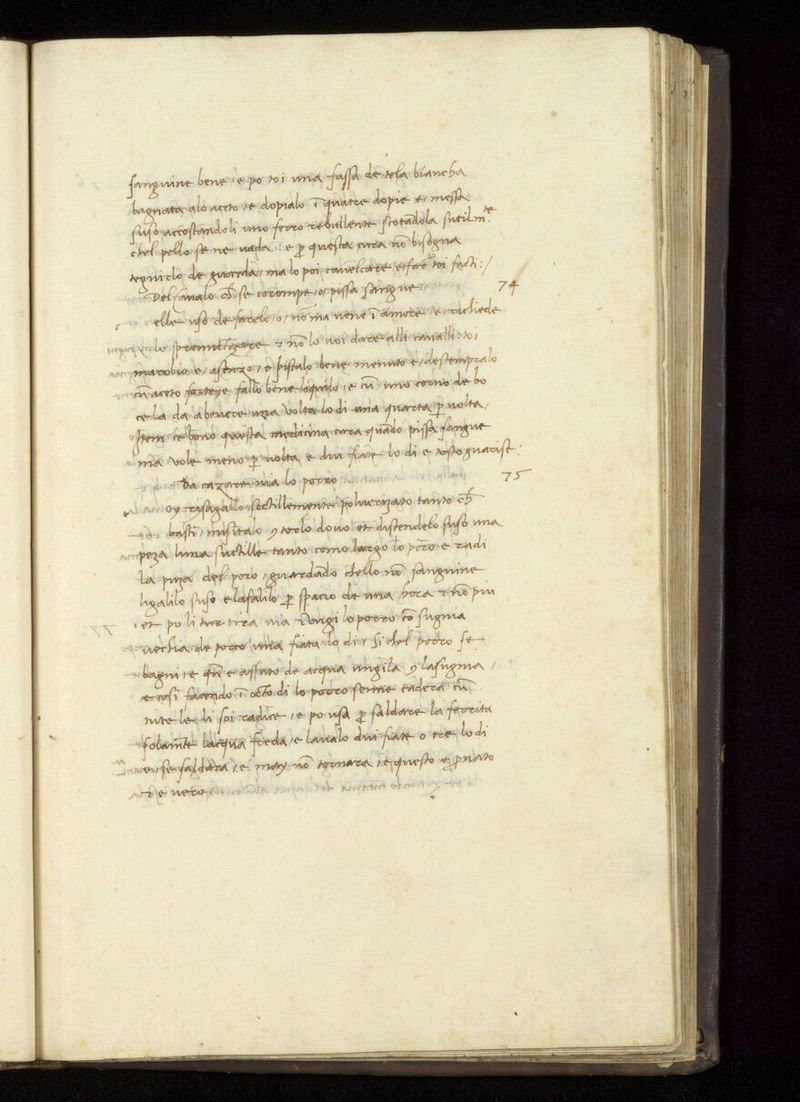 sanguine bene / e po toi una fassa de tela biancha
bagnata alo aceto / e dopialo ī quatre dopie e / messa
suso accostandoli uno ferro rebullente scotādola sutilmte
chel pello se ne vada : e p questa cura nō bisogna
tegnirlo de guarda / ma lo poi cavelcare e far toi facti : /
Del cavalo ch se corompe / o / pissa sangue / 74
elle uso de farlo / o / nō ma vene ī amore / e richiede
lo / & nō lo voi dare alli cavalli : toi
marobio e / asenzo / e pistalo bene menuto e / destempralo
cū aceto forte / e fallo bene liquido / e cū uno corno de bo
ce la da a bevere una volta lo di una quarta p volta /
Item ce bono questa medicina cura quādo pissa sangue
ma vole meno p volta e dui fiate lo di e tosto guarisse :
Da cazare via lo porro 75
oy risagallo sotillemente polverizato tanto ch
basti / misitalo y torlo dovo et distendelo suso una
peza lina suctille tanto como largo lo poro e radi
la del poro / guardādo chello nō sanguine
ligalilo suso e lasalilo p spacio de una hora & nō piu
et po li tira via & ungi lo porro cō sugnia
vechia de porco una fiata lo di & si chel porro se
bagni / e qn e assuto de acqua ungila y la sugnia /
e cosi facendo ī octo di lo porro senne cadera cū
tute le li soi radice / e po usa p saldare la ferrita
solamte lacqua freda / e lavalo dui fiate o tre lo di
e se saldara / e may nō tornara / e questo e pvato
& e vero